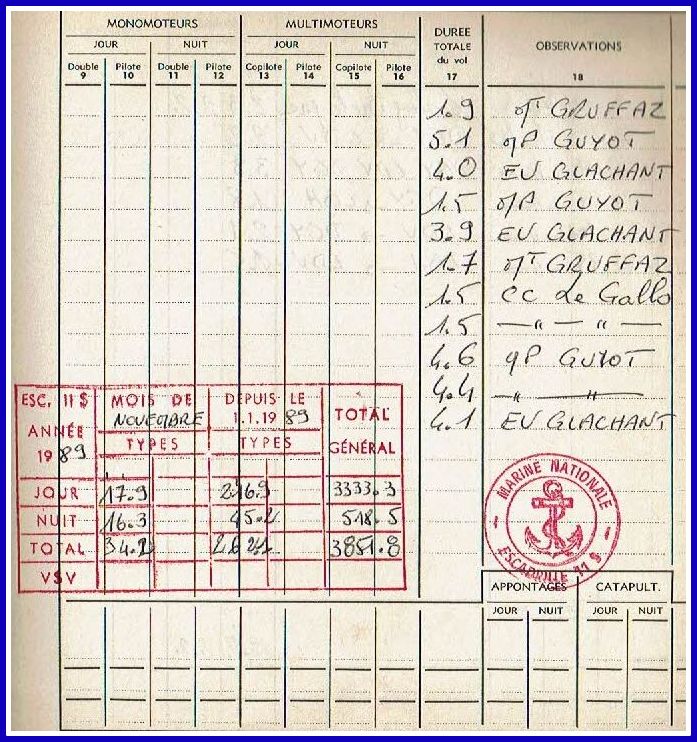 MONOMOTEURS MULTIMOTEURS DUREE TOTALE du vol OBSERVATIONS
JOUR NUIT JOUR NUIT
Double Pilote Double Pilote Copilote Pilote Copilote Pilote
9 10 11 12 13 14 15 16 17 18
1.9 GRUFFAZ
5.1 GUYOT
4.0 EV GLACHANT
1.5 GUYOT
3.9 EV GLACHANT
1.7 GRUFFAZ
1.5 CC Le Gallo
1.5 — " — " —
4.6 GUYOT
4.4 — " — " —
4.1 EV GLACHANT
ESC. 11 S MOIS DE NOVEMBRE DEPUIS LE 1.1.1989 TOTAL GÉNÉRAL
ANNÉE 1989 TYPES TYPES
JOUR 17.9 216.9 3333.3
NUIT 16.3 45.2 518.5
TOTAL 34.2 262.1 3851.8
VSV
MARINE NATIONALE
ESCADRILLE 11 S
APPONTAGES CATAPULT.
JOUR NUIT JOUR NUIT